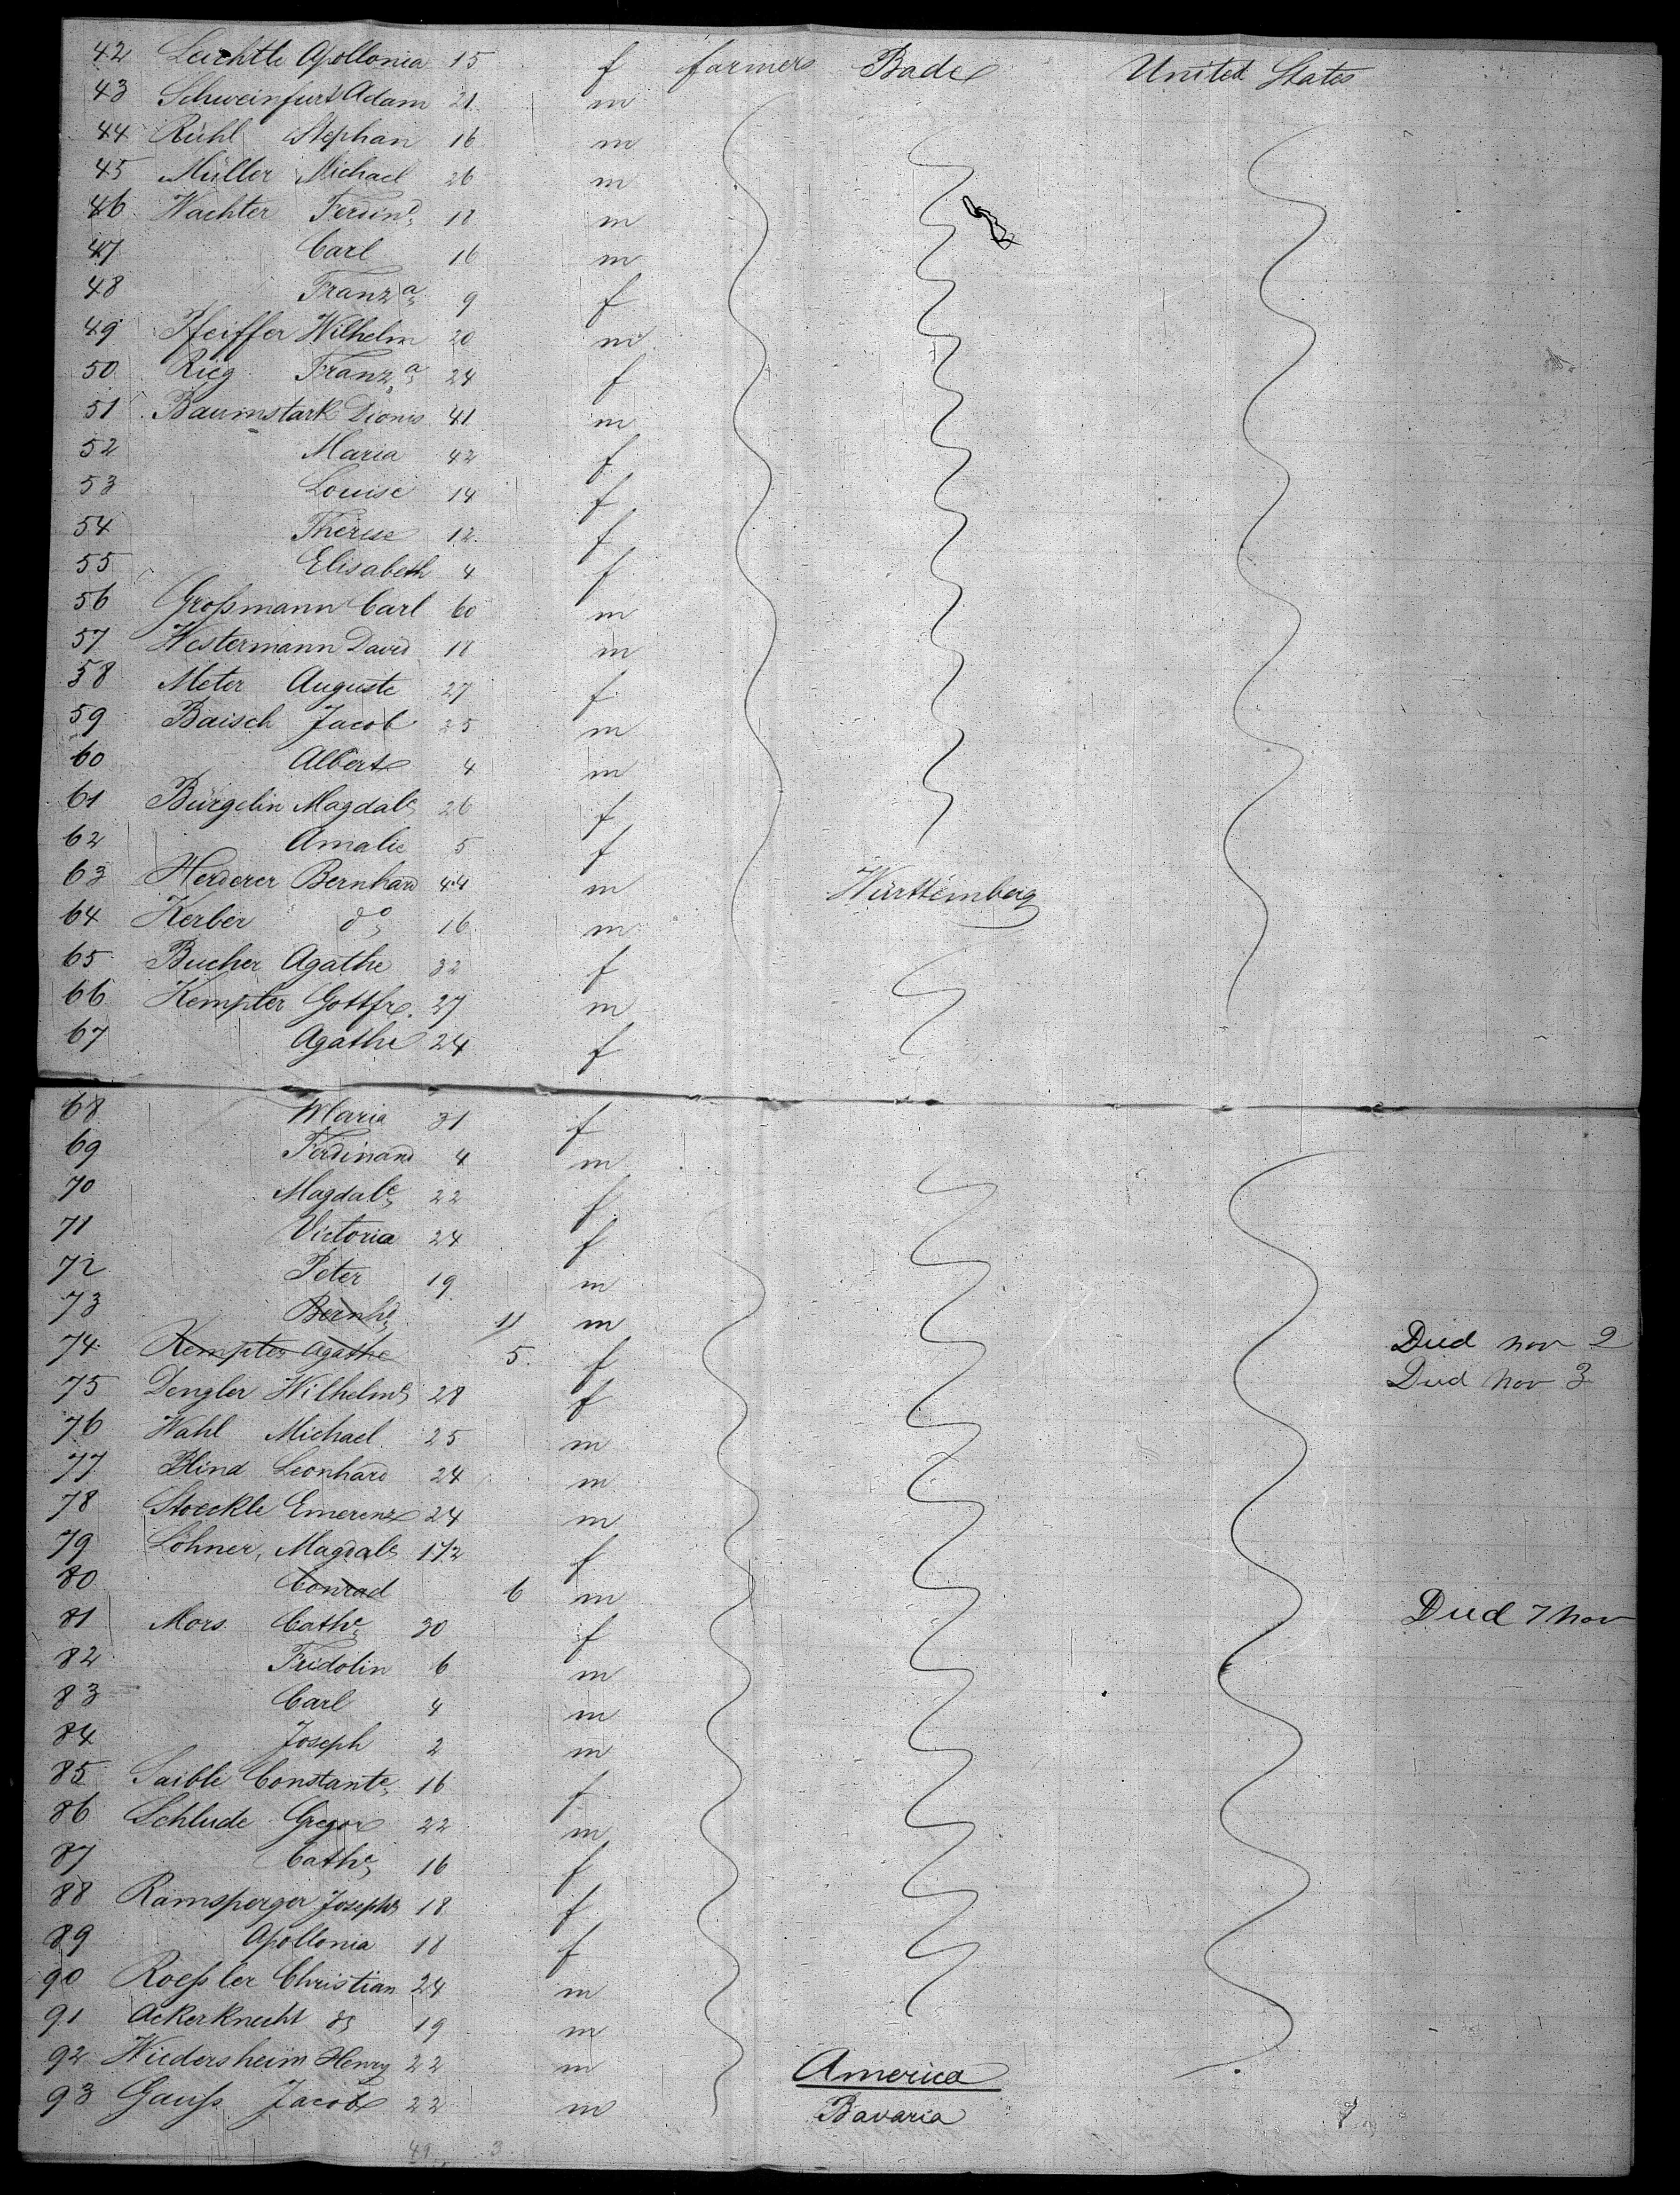 42 Leichtle Apollonia 15 f farmers Baden United States
43 Schweinfurt Adam 21 m
44 Rühl Stephan 16 m
45 Müller Michael 26 m
46 Wachter Ferdind 18 m
47 Carl 16 m
48 Franza 9 f
49 Pfeiffer Wilhelm 20 m
50 Rieg Franza 24 f
51 Baumstark Dionis 41 m
52 Maria 42 f
53 Louise 14 f
54 Therese 12 f
55 Elisabeth 4 f
56 Großmann Carl 60 m
57 Westermann David 18 m
58 Meter Auguste 27 f
59 Baisch Jacob 25 m
60 Albert 4 m
61 Bürgelin Magdale 26 f
62 Amalie 5 f
63 Herderer Bernhard 44 m Württemberg
64 Kerber do 16 m
65 Bucher Agathe 32 f
66 Kempter Gottfr. 27 m
67 Agathe 24 f
68 Maria 31 f
69 Ferdinand 4 m
70 Magdale 22 f
71 Victoria 24 f
72 Peter 19 m
73 Bernhd 11 m
74 Kempter Agathe 5 f Died nov 2
75 Dengler Wilhelme 28 f Died Nov 3
76 Wahl Michael 25 m
77 Blind Leonhard 24 m
78 Stoeckle Emerenz 24 m
79 Löhner, Magdale 1 1/2 f
80 Conrad 6 m
81 Mors Cathe 30 f Died 7 Nov
82 Fridolin 6 m
83 Carl 4 m
84 Joseph 2 m
85 Saible Constante 16 f
86 Schlude Gregor 22 m
87 Cathe 16 f
88 Ramsperger Josephe 18 f
89 Apollonia 18 f
90 Roeßler Christian 24 m
91 Ackerknecht do 19 m
92 Wiedersheim Henry 22 m America
93 Gauß Jacob 22 m Bavaria
49 3